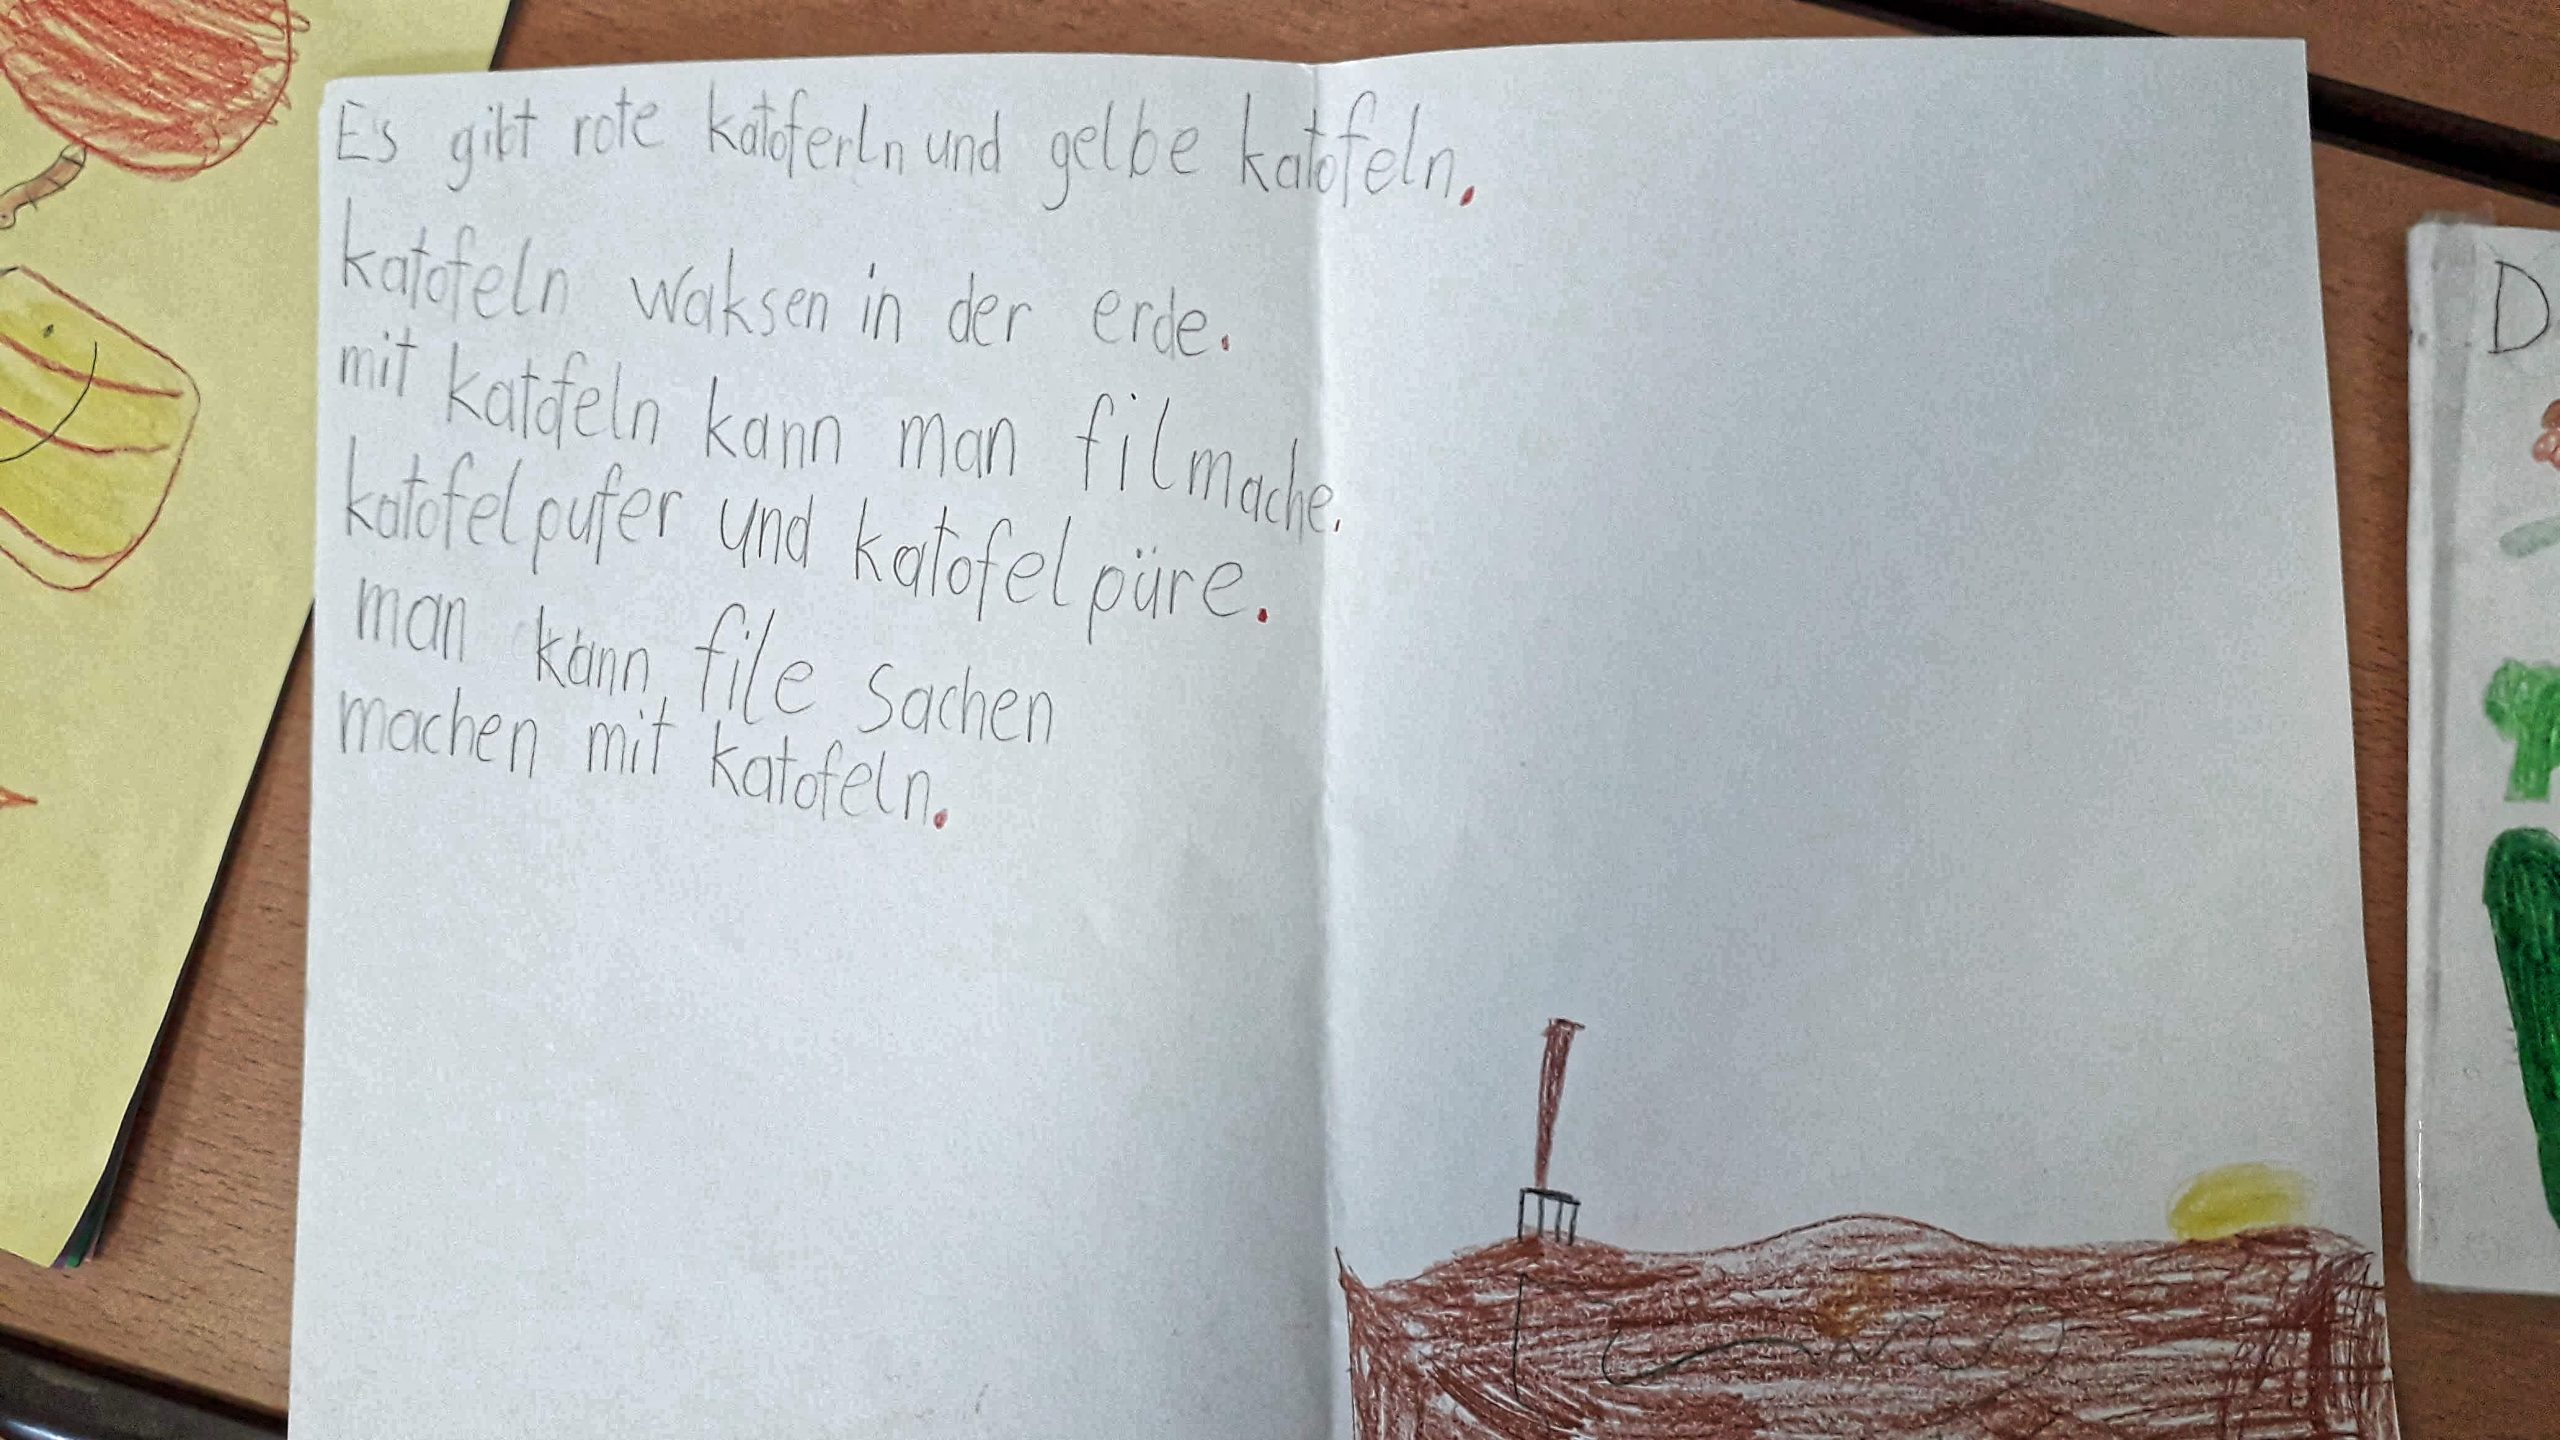 Es gibt rote katoferln und gelbe katofeln.
katofeln waksen in der erde.
mit katofeln kann man fil mache.
katofelpufer und katofelpüre.
man kann file sachen
machen mit katofeln.
D